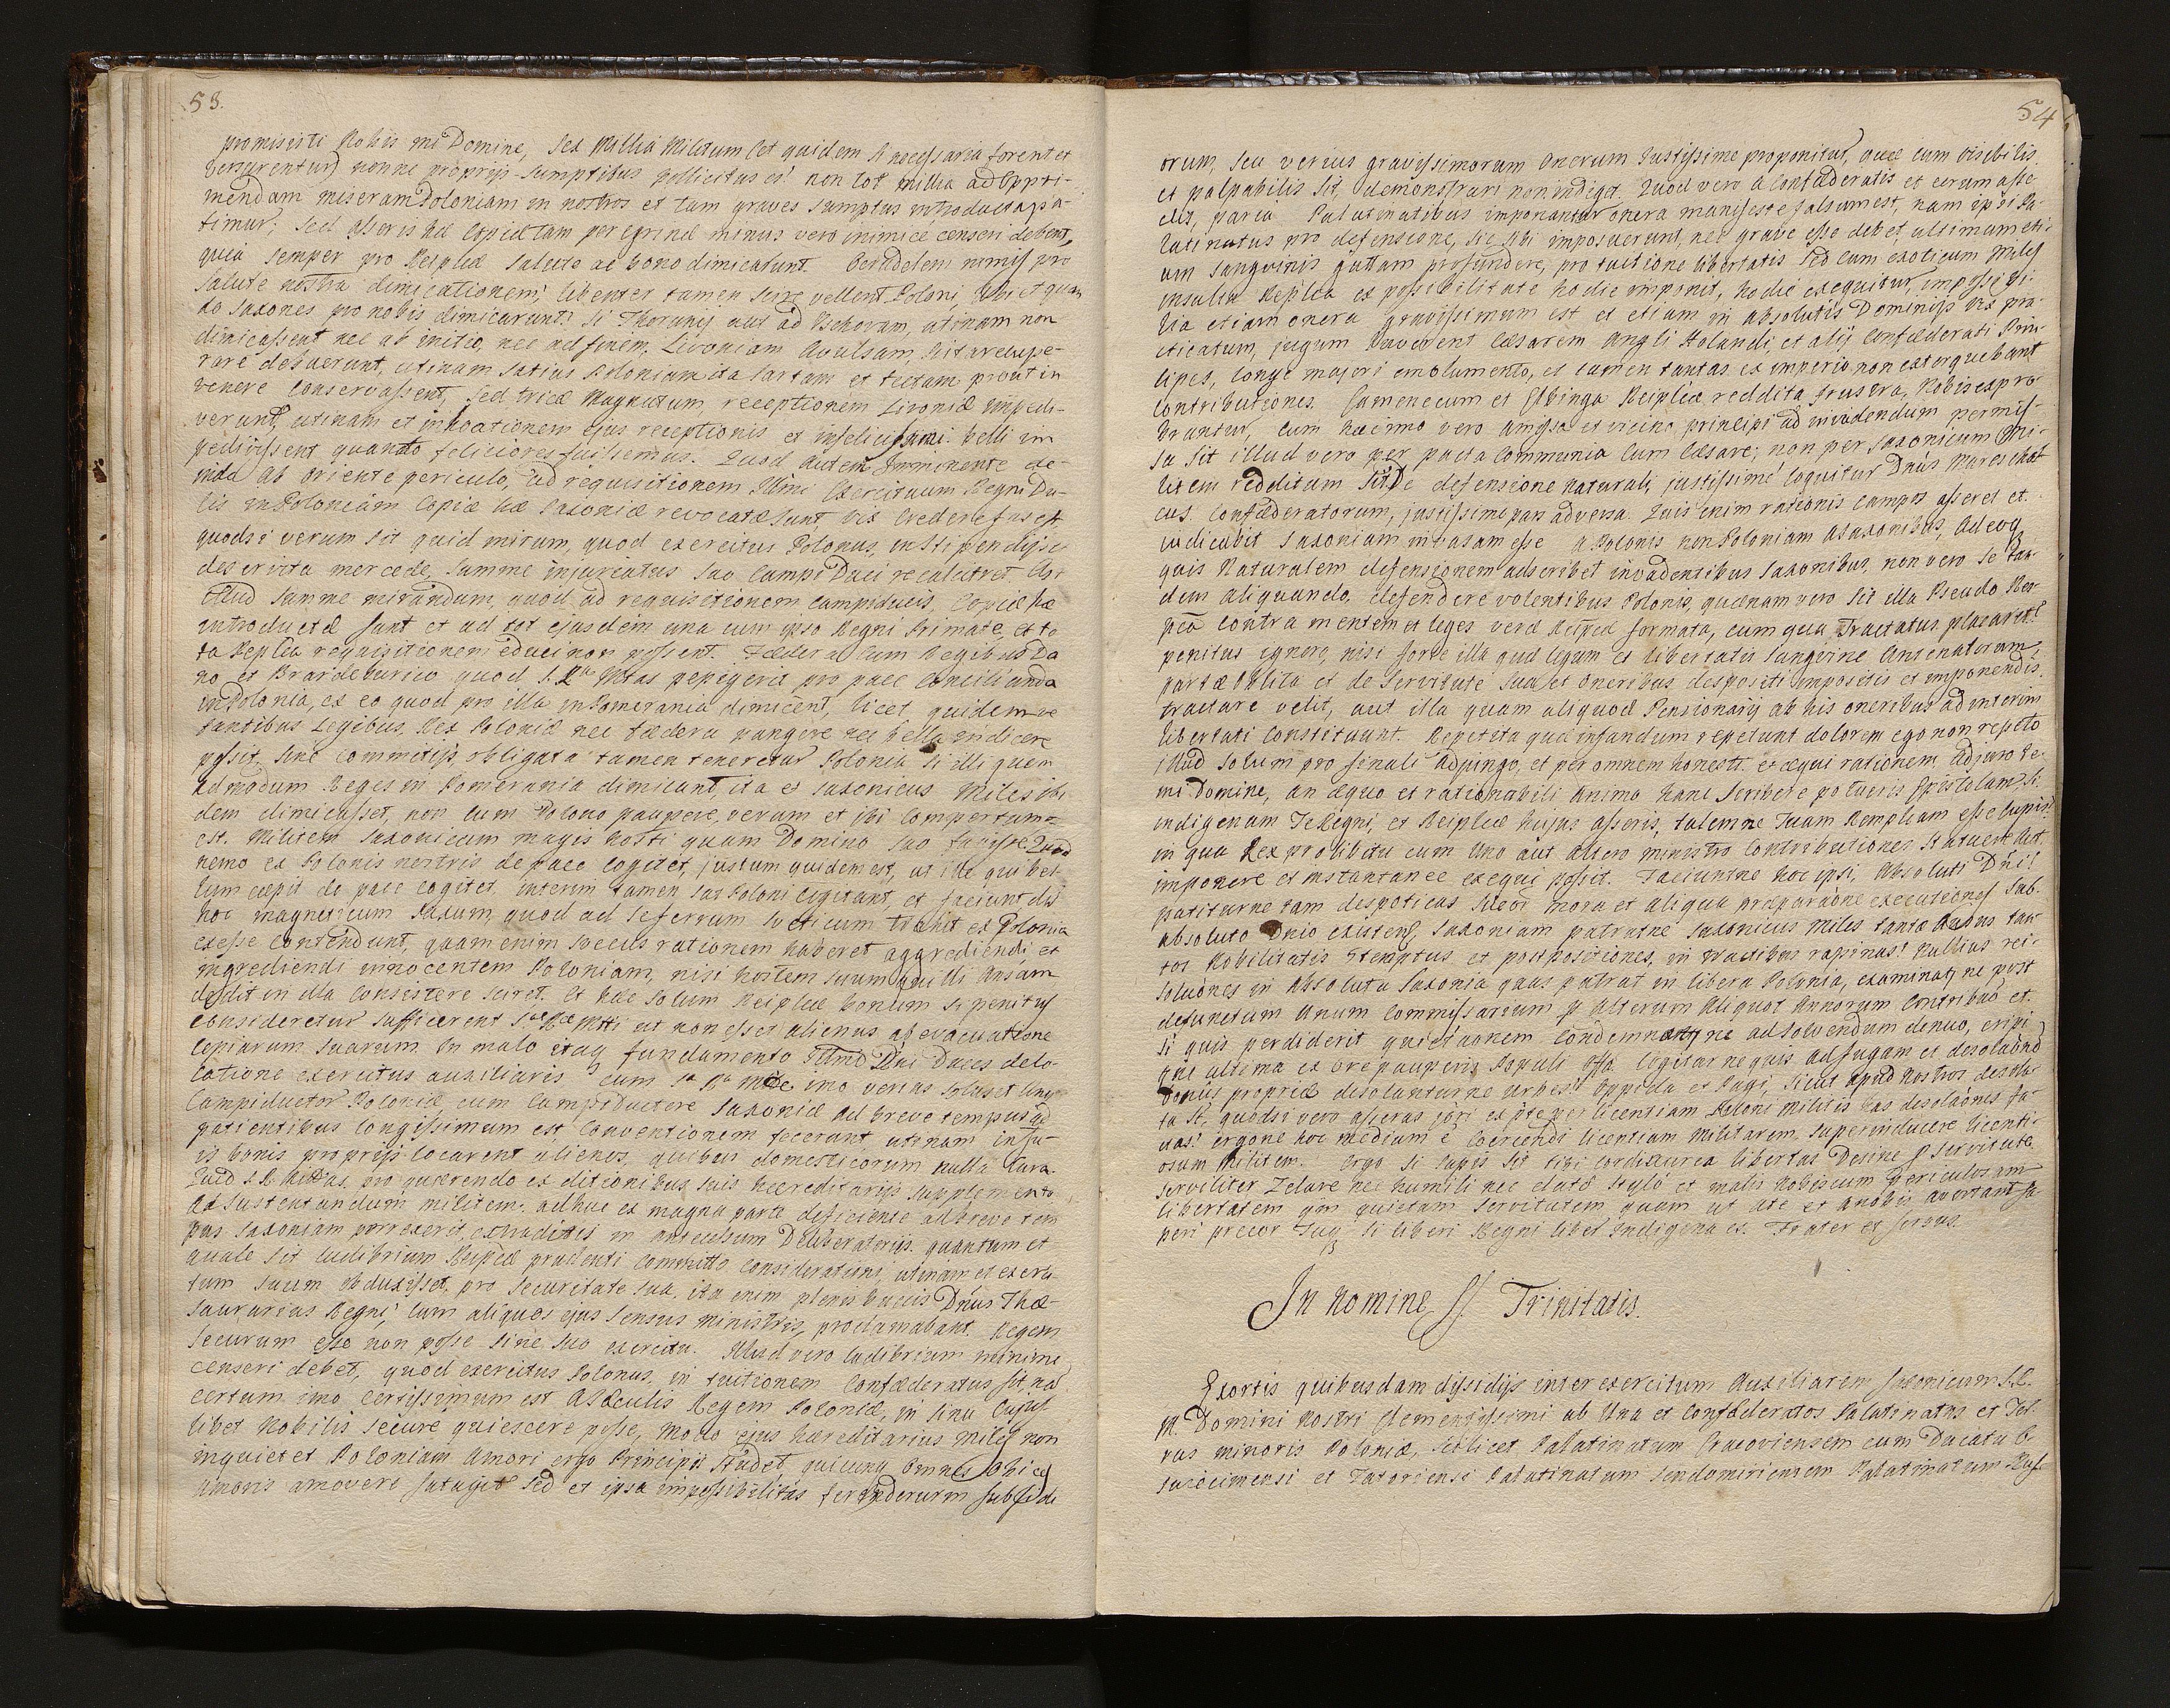 53.
promisisti Nobis mi Domine, sex Millia Militum (et quidem si necessaria forent et
versarentur) nonne propriis sumptibus pollicitus es? non tot millia ad oppri-
mendam miseram Poloniam in nostros et tam graves sumptus introducta pa-
timur; sed asseris hae Copiae tam peregrinae minus vero inimicae censeri debent,
quia semper pro Reiplicae salute ac bono dimicarunt. nimis pro
salute nostra dimicationem; libenter tamen scire vellent Poloni, Ubi et quan
do Saxones pro nobis dimicarunt? si Thorunij aut ad Pschovam, utinam non
dimicassent nec ab initio, nec ad finem, Livoniam Avulsam, recupe-
rare debuerunt, utinam satius Poloniam ita sartam et tectam prout in
venere Conservassent, sed tricae Magnatum receptionem Livoniae impedi-
verunt, utinam et inhoationem ejus receptionis et infelicissimi belli im
pedivissent quanto feliciores fuissemus. Quod autem Imminente de-
ab Oriente periculo, ad requisitionem Illmi Exercituum Regni Du-
cis in Poloniam Copiae hae Saxoniae revocatae sunt, vix Credere fas est
quodsi verum sit quid mirum, quod exercitus Polonus, in stipendijs
deservita mercede, summe injuriatus suo Campi Duci recalcitret. Ast
illud summe mirandum, quod ad requisitionem campiducis, Copiae hae
introductae sunt et ad tot ejusdem una cum ipso Regni Primate, et to
ta Replica requisitionem educi non possent. Foedera Cum Regibus Da
no et Brandeburico quod S. R. Mtas pepigerit pro pace Concilianda
in Polonia, ex eo quod pro illa in Pomerania dimicent, licet quidem ve
tantibus Legibus, Rex Poloniae nec foedera pangere nec bella indicere
possit, sine Committijs obligata tamen teneretur Polonia si illi quem
admodum Reges in Pomerania dimicant, ita et Saxonicus Miles ibi
dem dimicasset, non cum Polono paupere, verum et ibi Compertum
est. Militem Saxonicum magis hosti quam Domino suo Quod
nemo ex Polonis nostris de pace Cogitet, justum quidem est, ut ille qui bel-
lum caepit de pace cogitet. interim tamen sat Poloni Cogitant, et
hoc magneticum Saxum, quod ad se ferrum Sveticum trahit ex Polonia
exesse Contendunt, quam enim Svecus rationem haberet aggrediendi et
ingrediendi innocentem Poloniam, nisi hostem suum qui illi Ansam
dedit in illa Consistere sciret. Et hoc solum Reiplicae bonum si penitus
Consideretur sufficerent Sae Rae Mtti ut non esset alienus ab evacuatione
Copiarum suarum. In malo itaq fundamento Illmi Dni Duces delo-
catione exercitus auxiliaris cum Sa Ra Mtte imo verius solus et Unus
Campiductor Poloniae cum Campiductore Saxoniae ad breve tempus
patientibus longissimum est, Conventionem fecerunt utinam in su-
is bonis proprijs locarent alienos, quibus domesticorum nulla Cura.
Quod S. R. Mttas, pro quaerendo ex ditionibus suis haereditarijs supplemento
ad sustentandum militem adhuc ex magna parte deficiente ad breve tem
pus Saxoniam porrexerit, extraditis in antecessum Deliberatorijs. quantum et
quale sit ludibrium Reiplicae prudenti Committo Considerationi, utinam et exerci-
tum suum abduxisset, pro securitate sua, ita enim plenis buccis Dnus Thae-
saurarius Regni, cum aliquos ejus sensus ministris, proclamabant. Regem
securum esse non posse sine suo exercitu. Illud vero ludibrium minime
censeri debet, quod exercitus Polonus, in tuitionem Confaederatus sit, na
certum imo Certissimum est A Saeculis Regem Poloniae, in sinu Cujus
libet Nobilis secure quiescere posse, modo ejus haereditarius Miles non
inquietet Poloniam Amori ergo Principis Studet quicunq Omnes Obices
Amoris amovere satagit sed et ipsa impossibilitas ferendorum subsidi
54
orum, seu verius gravissimorum Onerum Justissime proponitur, quae cum visibilis
et palpabilis sit, demonstrari non indiget. Quod vero A Confaederatis et eorum asse
clis, paria Palatinatibus imponantur onera manifeste falsum est, nam ipsi Pa-
latinatus pro defensione, sic sibi imposuerunt, nec grave esse debet, ultimam eti-
am sanguinis guttam profundere, pro tuitione libertatis Sed cum exoticum Miles
insulta Replica ex possibilitate hodie imponit, hodie exequitur, impossibi-
lia etiam onera gravissimum est et etiam in absolutis Dominijs vix pra-
cticatum, jugum Caesarem Angli Holandi, et alij Confaederati Prin-
cipes, longe majori emolumento, et tamen tantas ex imperio non extorquebant
Contributiones. Camenecum et Elbinga Reiplicae reddita frustra, Nobis expro
brantur, cum haec imo vero amissa et vicino principi ad invidendum permis-
sa sit illud vero per pacta Communia Cum Caesare; non per Saxonicum Mi-
litem redditum sit. De defensione naturali, justissime loquitur Dnus Mareschal
cus Confaederatorum, justissime pars adversa. Quis enim rationis Campos asseret et.
judicabit Saxoniam invasam esse A Polonis non Poloniam A Saxonibus, Adeoq
quis Naturalem defensionem adscribet invadentibus Saxonibus, non vero se tan
dem aliquando, defendere volentibus Polonis, quaenam vero sit illa Pseudo Res-
pca Contra mentem et leges verae Reipcae formata, cum qua Tractatus placaret?
penitus ignoro, nisi forte illa quae legum et libertatis sanguine Antenatorum,
partae Oblita et de servitute sua et Oneribus despositi impositis et imponendis
tractare velit, aut illa quam aliquod Pensionarij ab his oneribus ad interim
libertati Constituunt. Repetita quae infandum repetunt dolorem ego non repeto
illud solum pro finali Adjungo, et per omnem honesti et aequi rationem, Adjuro te
mi Domine, an aequo et rationabili Animo hanc scribere potueris Epistolam, si
indigenam Te Regni, et Reiplicae hujus asseris, talemne Tuam Remplicam esse Cupis?
in qua Rex pro libitu cum Uno aut Altero ministro Contributiones Statuere Aut
imponere et instantanee exequi possit. Faciuntne hoc ipsi, Absoluti Dni?
patiturne tam despoticas sine mora et aliqua praeparatione executiones sub
absoluto Dnio existens, Saxoniam patratne Saxonicus Miles tantas clades tan
tos Nobilitatis Stemptus et postpositiones, in tractibus rapinas? Nullius rei
solutiones in Absoluta Saxonia quas patrat in libera Polonia, examinatne post
defunctum Unum Commissarium per Alterum aliquot Annorum Contributio et
si quis perdiderit quietationem Condemnatne ad solvendum denuo, eripi
tne ultima ex ore pauperis Populi offa Cogiturne quis ad fugam et desolationem
domus propriae desolanturne Urbes! Oppida et Pagi, sicut apud nostros desola-
ta st, quodsi vero asseras jari ex per licentiam Poloni Militis has desolationes fa-
ctas! ergone hoc medium e Coercendi licentiam Militarem, superinducere licenti-
osum Militem. Ergo si sapis sit tibi Cordi Aurea libertas Desine pro servitute
serviliter Zelare nec humili nec elato Stylo et malis Nobiscum periculosam
libertatem qm quietam servitutem quam ut A te et A nobis avertant Su
peri precor Tuq si liberi Regni libet Indigena es. Frater et servus.
In Nomine SS. Trinitatis.
Exortis quibusdam dissidijs inter exercitum Auxiliarem Saxonicum S.R.
M. Domini Nostri Clementissimi ab Una et Confaederatos Palatinatus et Ter
ras Minoris Poloniae, scilicet Palatinatum Cracoviensem cum Ducatu O-
swiecimensi et Zatoriensi Palatinatum Sendomiriensem Palatinatum Russ